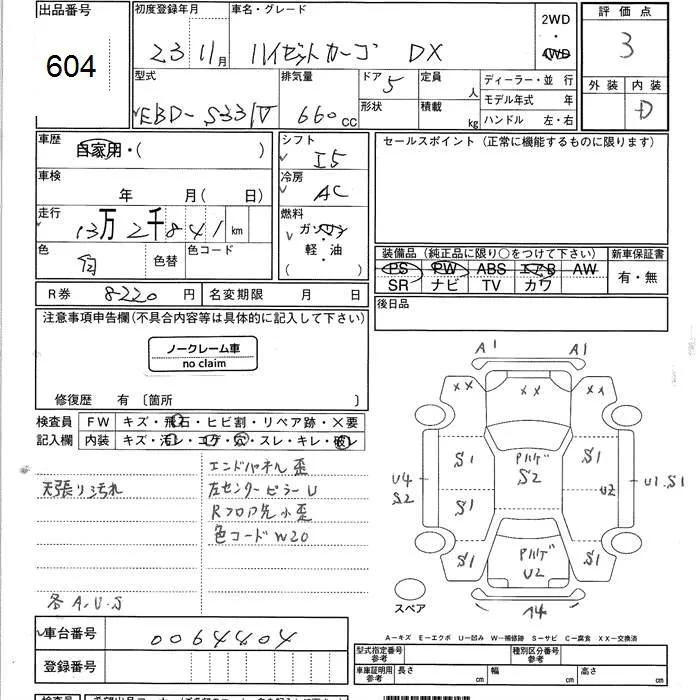 出品番号
604
初度登録年月
23 11月
車名・グレード
ハイゼットカーゴ DX
2WD
・
4WD
評価点
3
外装 内装
D
型式
EBD-S331V
排気量
660 CC
ドア 5
形状
定員 人
積載 kg
ディーラー・並行
モデル年式 年
ハンドル 左・右
車歴
自家用・( )
車検
年 月( 日)
走行
13万2千841 km
色
白
色替
色コード
シフト
I5
冷房
AC
燃料
ガソリン
軽・油
( )
セールスポイント(正常に機能するものに限ります)
装備品(純正品に限り○をつけて下さい)
PS PW ABS エアB AW
SR ナビ TV カワ
新車保証書
有・無
R券 8220 円
名変期限 月 日
後日品
注意事項申告欄(不具合内容等は具体的に記入して下さい)
ノークレーム車
no claim
修復歴 有〔箇所 〕
検査員
記入欄
FW キズ・飛石・ヒビ割・リペア跡・×要
内装 キズ・汚レ・コゲ・穴・スレ・キレ・破レ
天張り汚れ
各A.U.S
エンドパネル歪
左センターピラーU
Rフロア先小歪
色コードW20
A1 A1
×× ×× ××
U4
S2
S1
Pハゲ
S2
S1
U2
U1.S1
S1
S1
Pハゲ
U2
S1
スペア
A4
A-キズ E-エクボ U-凹み W-補修跡 S-サビ C-腐食 XX-交換済
車台番号
0064404
登録番号
型式指定番号
参考
種別区分番号
参考
車庫証明用
参考
長さ cm
幅 cm
高さ cm